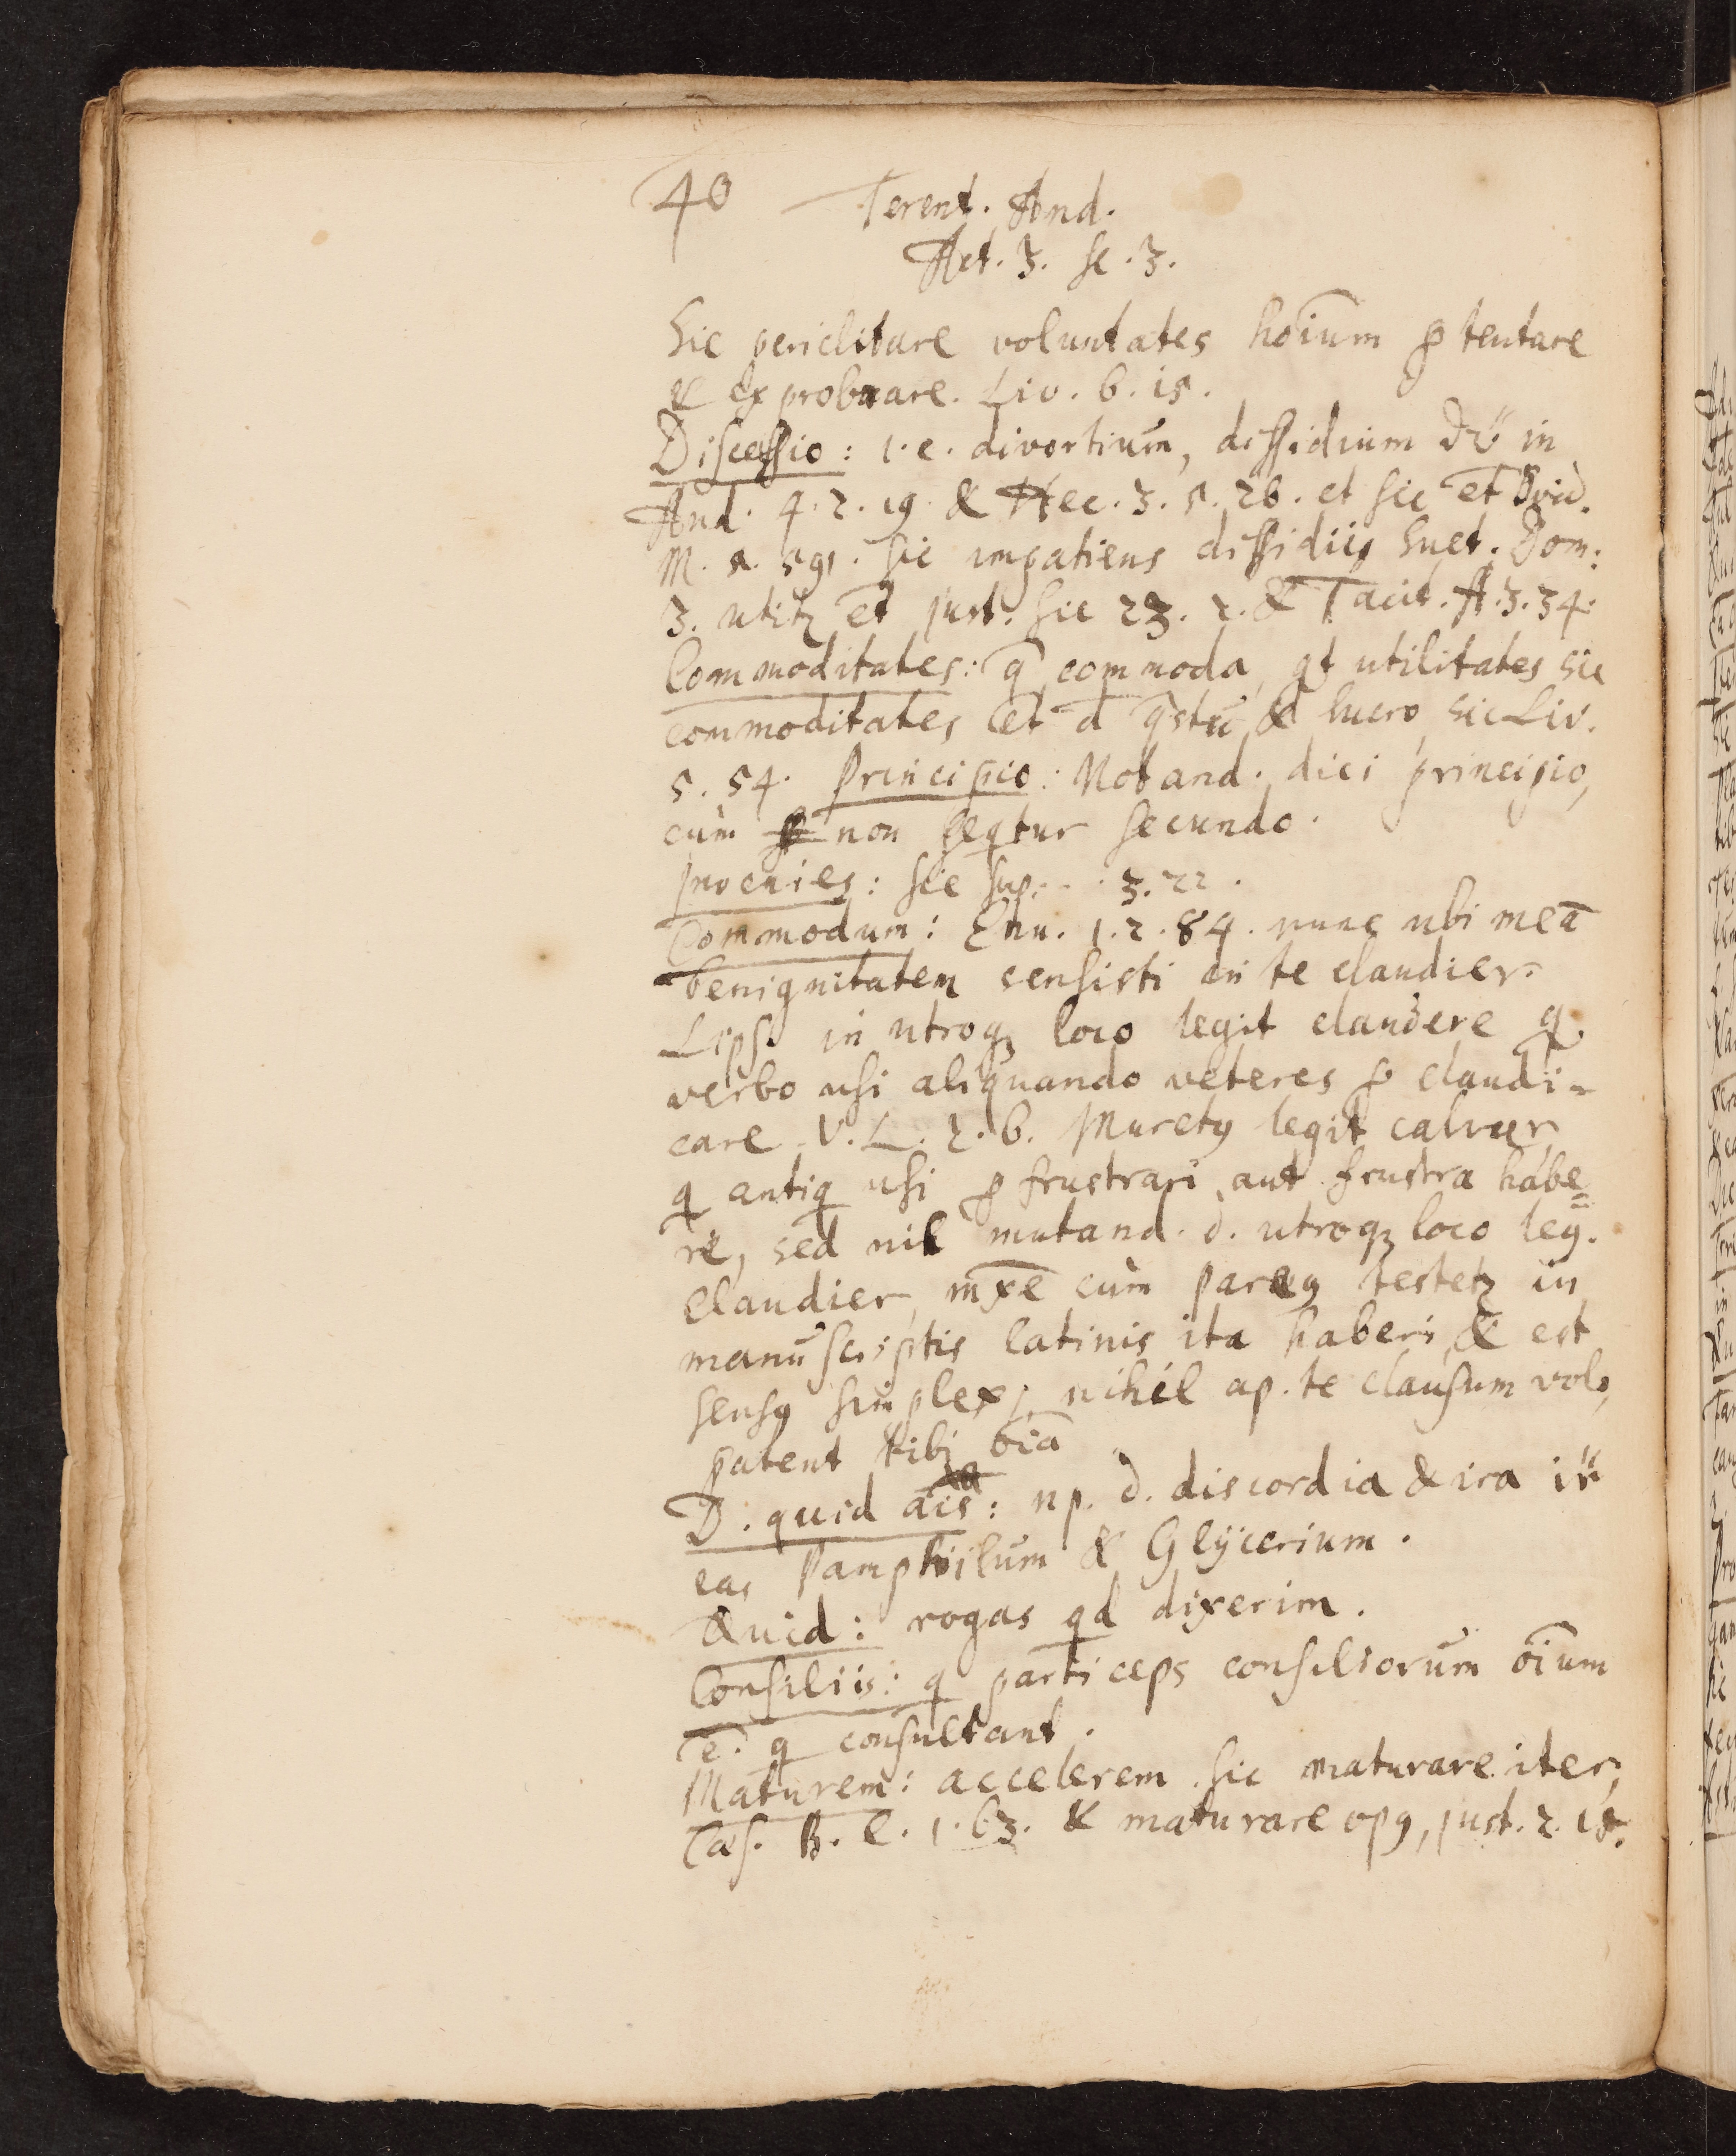 40 Terent. And.
Act. 3. sc. 3.
Sic periclitare voluntates hoīum ꝑ tentare
& exprobrare. Liv. 6. 15.
Discessio: i.e. divortium, dissidium in
And. 4. 2. 19. & Hec. 3. 5. 26. et sic et̄ Ovid.
M. 5. 591. sic impatiens dissidiis Suet. Dom:
3. utitꝛ et̄ Just. sic 23. 2. & Tacit. A. 3. 34.
Commoditates: q̄ commoda, qt utilitates sic
commoditates et̄ d̄ q̄stu & lucro, sic Liv.
5. 54. Principio: Notand. dici principio,
cùm non seqtur secundo.
provenies: sic sup. - . 3. 22.
Commodum: Eun. 1. 2. 84. nunc ubi meā
benignitatem sensisti in te claudier.
Lips. in utroqꝫ loco legit claudere q
verbo usi aliquando veteres ꝑ claudi-
care V. L. 2. 6. Muretꝰ legit calvier
q antiq usi ꝑ frustrari, aut frustra habe=
re, sed nil mutand. d. utroqꝫ loco leg.
claudier, mxē cùm Pareꝰ testetꝛ in
manuscriptis latinis ita haberi, & est
sensꝰ simplex; nihil ap. te clausum volo,
patent tibi oīa
D. quid ais: np. d. discordia & ira ir̄
eas Pamphilum & Glÿcerium.
Quid: rogas qd dixerim.
Consiliis: q particeps consiliorum oīum
ē. q consultant.
Maturem: accelerem sic maturare iter,
Cæs. B. C. 1. 63. & maturare opꝰ, Just. 2. 15.